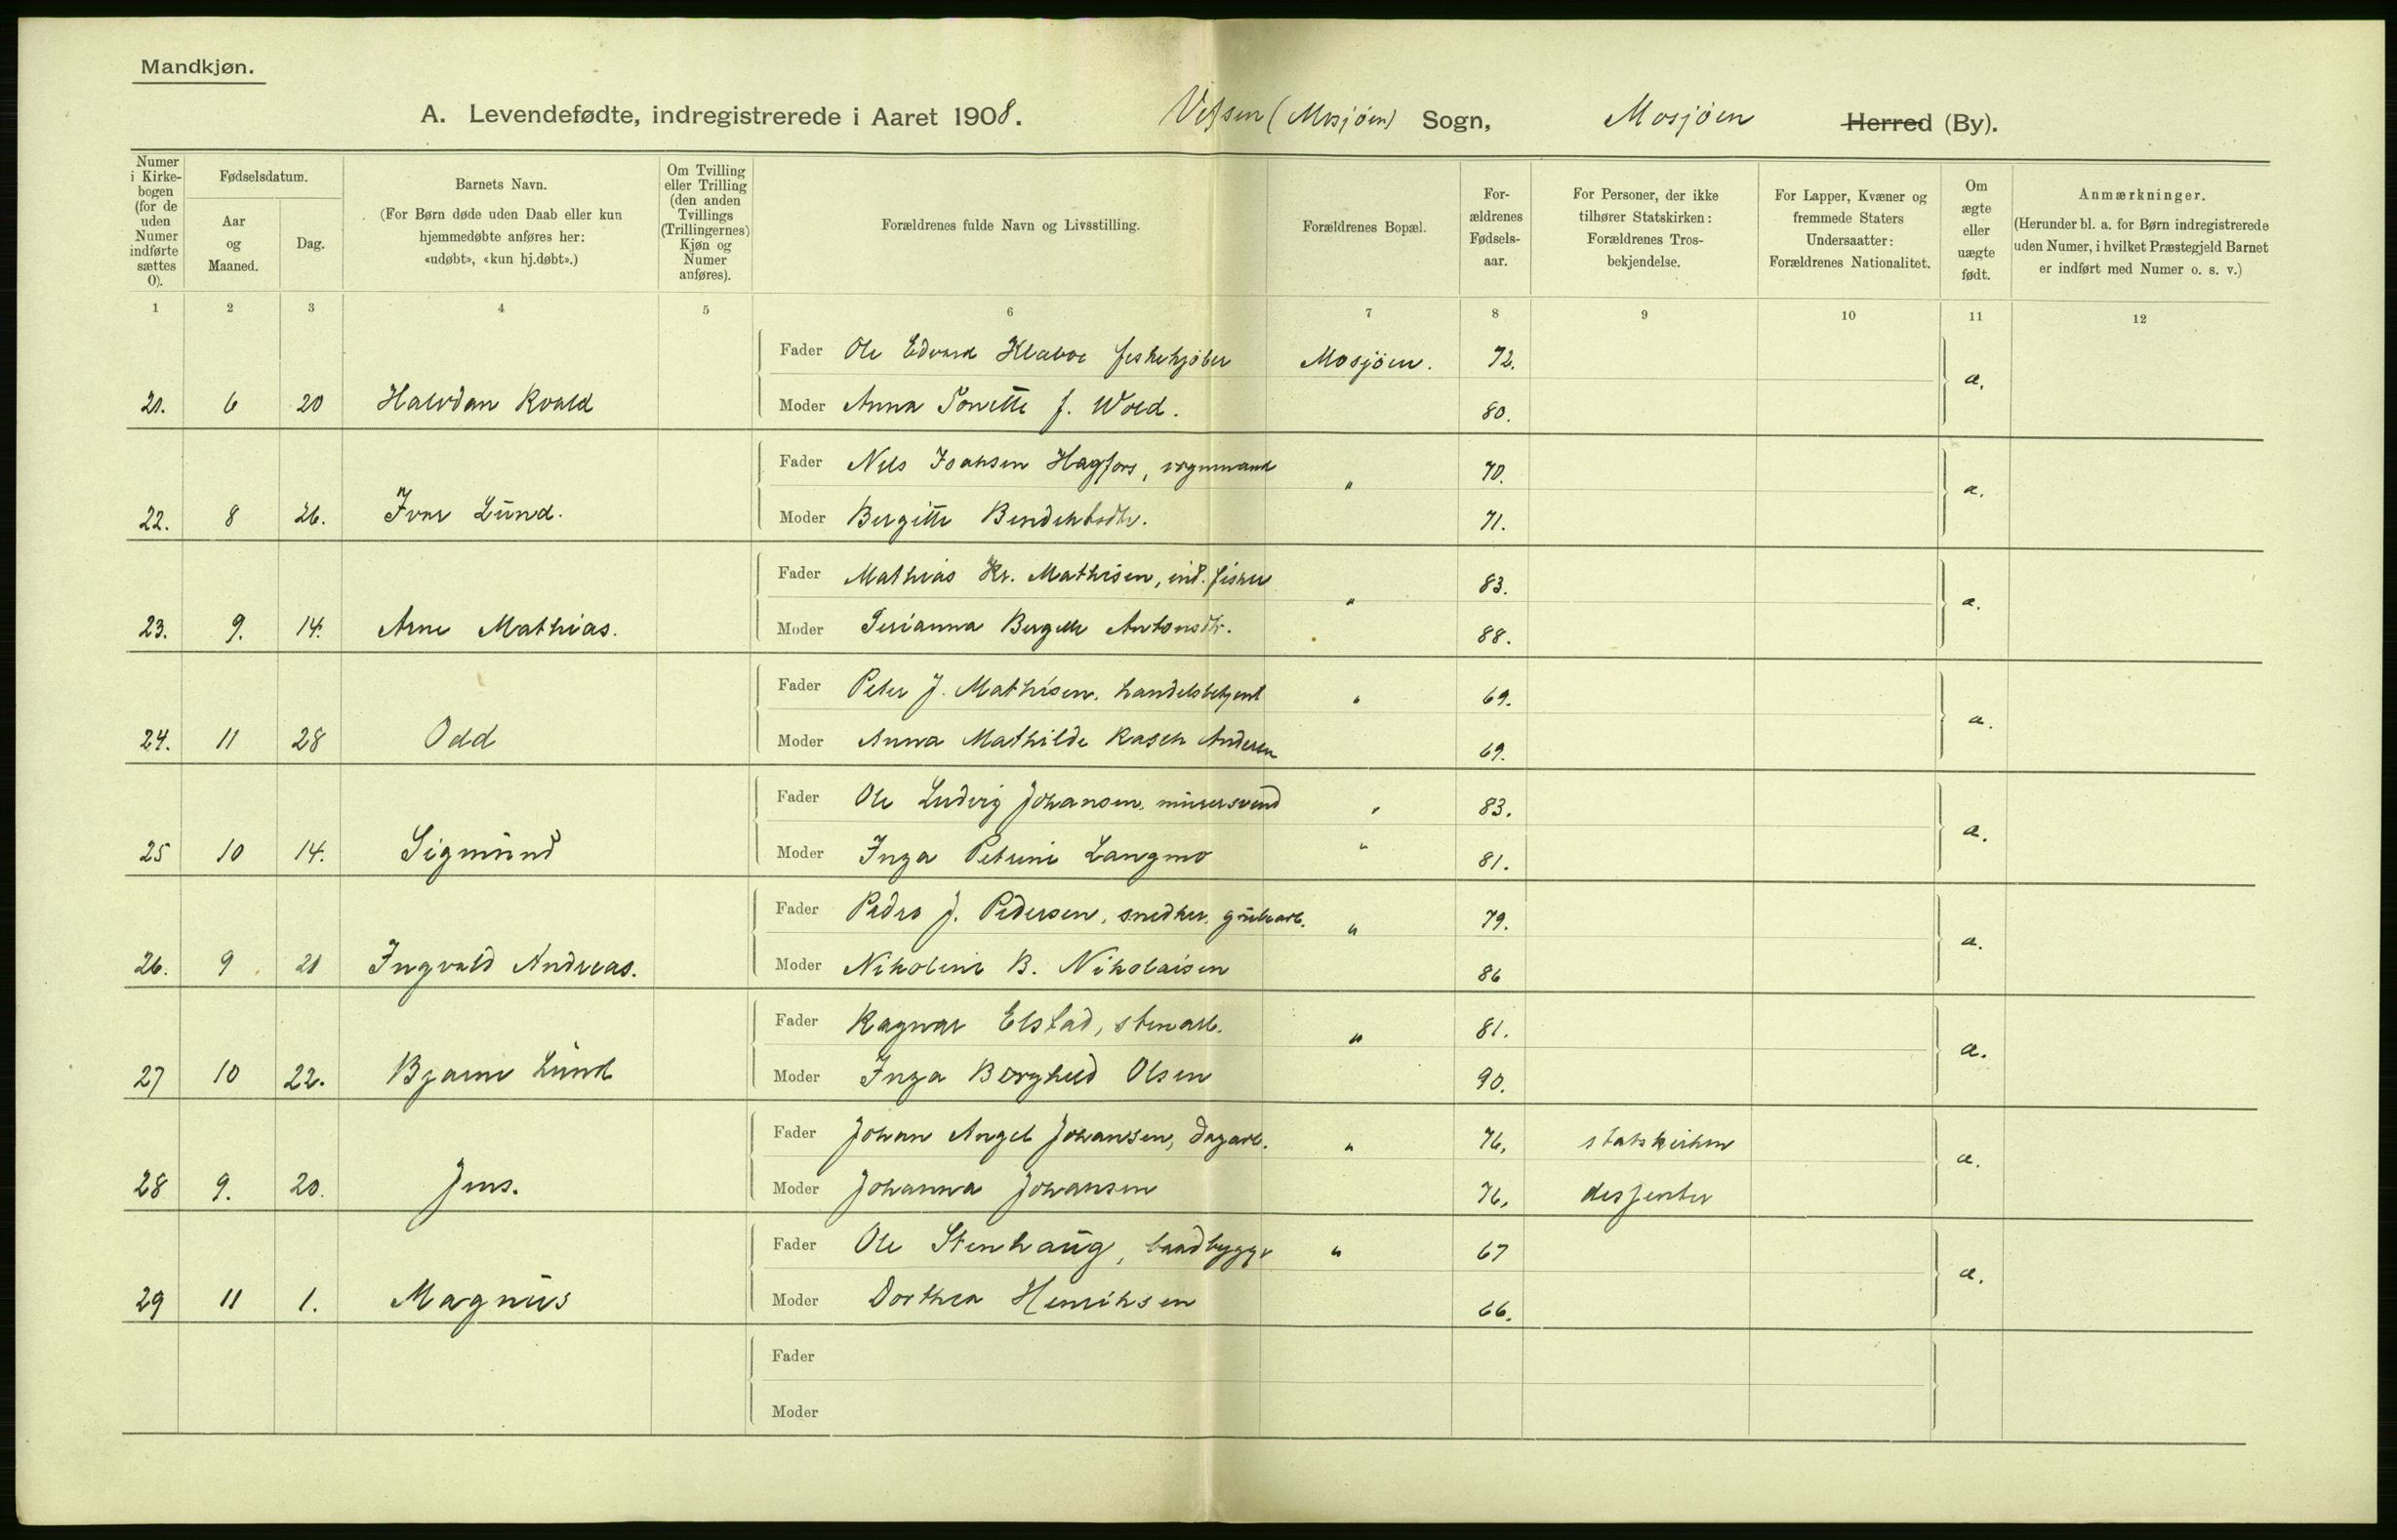 Mandkjøn.
A. Levendefødte, indregistrerede i Aaret 1908. Vefsen (Mosjøen) Sogn, Mosjøen Herred (By).
Numer i Kirkebogen (for de uden Numer indførte sættes 0).
Fødselsdatum.
Aar og Maaned.
Dag.
Barnets Navn.
(For Børn døde uden Daab eller kun hjemmedøbte anføres her: «udøbt», «kun hj.døbt».)
Om Tvilling eller Trilling (den anden Tvillings (Trillingernes) Kjøn og Numer anføres).
Forældrenes fulde Navn og Livsstilling.
Forældrenes Bopæl.
Forældrenes Fødselsaar.
For Personer, der ikke tilhører Statskirken: Forældrenes Trosbekjendelse.
For Lapper, Kvæner og fremmede Staters Undersaatter: Forældrenes Nationalitet.
Om ægte eller uægte født.
Anmærkninger.
(Herunder bl. a. for Børn indregistrerede uden Numer, i hvilket Præstegjeld Barnet er indført med Numer o. s. v.)
1 2 3 4 5 6 7 8 9 10 11 12
Fader Ole Edvard Klæboe fiskekjøber Mosjöen. 72.
21. 6 20 Halvdan Roald Moder Anna Tonette f. Wold. 80. æ.
Fader Nels Isaksen Hagfors, vognmand " 70.
22. 8 26. Ivar Lund. Moder Bergitte Bendiktsdtr. 71. æ.
Fader Mathias Kr. Mathisen, ind. fisker " 83.
23. 9. 14. Arne Mathias. Moder Bergitte Antonsdtr. 88. æ.
Fader Peter J. Mathisen, handelsbetjent " 69.
24. 11 28 Odd Moder Anna Mathilde Rasch Andersen 69. æ.
Fader Ole Ludvig Johansen, murersvend " 83.
25 10 14. Sigmund Moder Inga Petrine Langmo " 81. æ.
Fader Peder J. Pedersen, snedker, grubearb. " 79.
26. 9 21 Ingvald Andreas. Moder Nikoline B. Nikolaisen 86 æ.
Fader Ragnar Elstad, stenarb. " 81.
27 10 22. Bjarne Lund Moder Inga Borghild Olsen 90. æ.
Fader Johan Angel Johansen, dagarb. " 76, statskirken
28 9. 20. Jens. Moder Johanna Johansen 76, dissenter æ.
Fader Ole Stenhaug, baadbygger " 67
29 11 1. Magnus Moder Dorthea Henriksen 66. æ.
Fader
Moder